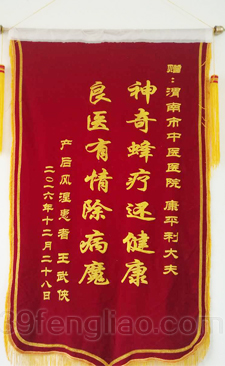 赠:渭南市中医医院 康平利大夫
神奇蜂疗还健康
良医有情除病魔
产后风湿患者 王武侠
二〇一六年十二月二十八日
39fengliao.com